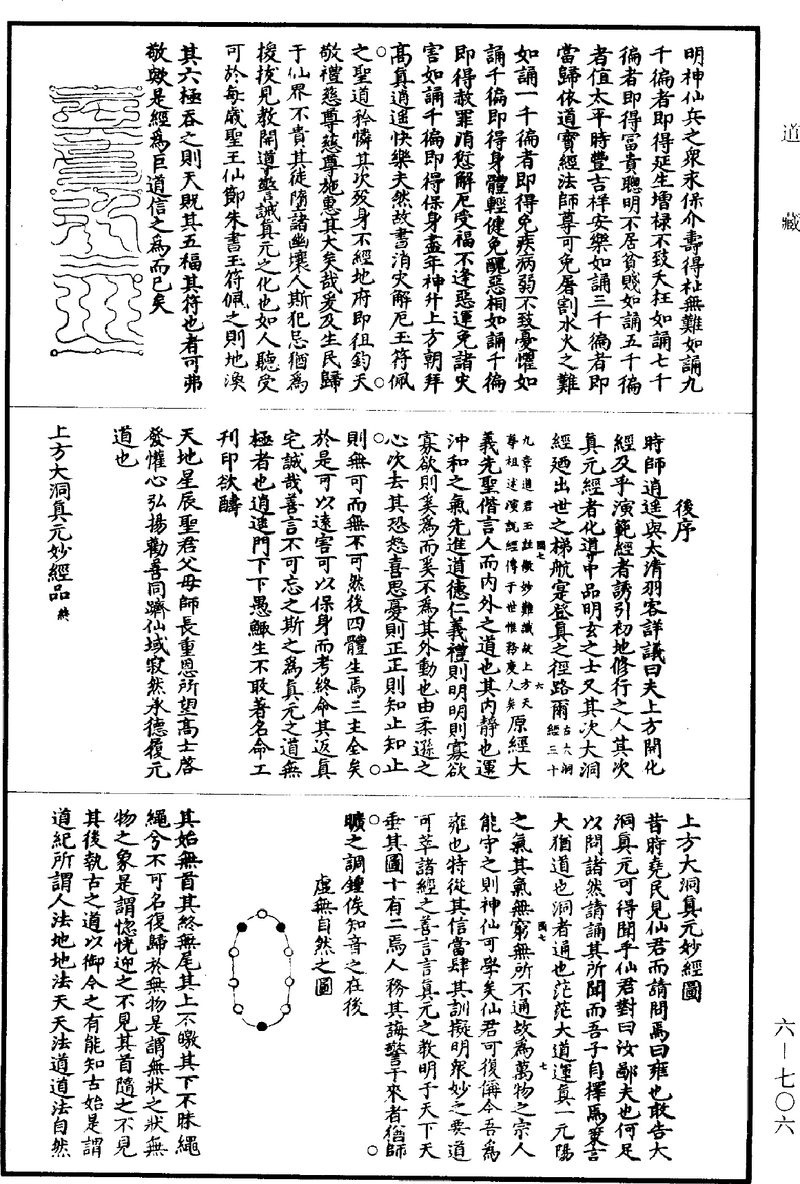 明神仙兵之衆求保介壽得祉無難如誦九
千徧者即得延生增祿不致夭枉如誦七千
徧者即得冨貴聰明不居貧賤如誦五千徧
者值太平時豐吉祥安樂如誦三千徧者即
當歸依道寶經法師尊可免屠割水火之難
如誦一千徧者即得免疾病弱不致憂懼如
誦千徧即得身體輕健免醜惡相如誦千徧
即得赦罪消愆解厄受福不逢惡運免諸灾
害如誦千徧即得保身盡年神升上方朝拜
高真逍遥快樂夫然故書消灾解厄玉符佩
之聖道矜憐其次歿身不經地府即徂鈞天
敬禮慈尊慈尊施惠其大矣哉爰及生民歸
于仙界不貴其徒墮諸幽壞人斯犯忌猶為
授拔見教開導警誡真元之化也如人聽受
可於每歲聖王仙節朱書玉符佩之則地渙
其六極吞之則天貺其五福其符也者可弗
敬歟是經爲巨道信之爲而已矣
後序
時師逍遥與太清羽客詳議曰夫上方開化
經及乎演範經者誘引初地修行之人其次
真元經者化導中品明玄之士又其次大洞
經廼出世之梯航寔登真之徑路爾古大洞經三十
九章道君玉註微妙難識故上方天尊祖述演說經傳于世惟務度人矣原經大
義先聖偕言人而内外之道也其内靜也運
沖和之氣先進道德仁義禮則明明則寡欲
寡欲則奚爲而奚不爲其外動也由柔遜之
心次去其恐怒喜思憂則正正則知止知止
則無可而無不可然後四體生焉三主全矣
於是可以遠害可以保身而考終命其返真
宅誠哉善言不可忘之斯之爲真元之道無
極者也逍遥門下下愚鯫生不敢著名命工
刊印欲醻
天地星辰聖君父母師長重恩所望高士啓
發懽心弘揚勸善同躋仙域寂然承德履元
道也
上方大洞真元妙經品
上方大洞真元妙經圖
昔時堯民見仙君而請問焉曰雍也敢告大
洞真元可得聞乎仙君對曰汝鄙夫也何足
以問諸然請誦其所聞而吾子自擇焉稟言
大猶道也洞者通也茫茫大道運真一元陽
之氣其氣無窮無所不通故爲萬物之宗人
能守之則神仙可學矣仙君可復儞今吾爲
雍也特從其信當肆其訓擬明衆妙之要道
可萃諸經之善言言真元之教明于天下天
垂其圖十有二焉人務其誨警于來者猶師
曠之調鍾俟知音之在後
虛無自然之圖
其始無首其終無尾其上不皦其下不昧繩
繩兮不可名復歸於無物是謂無狀之狀無
物之象是謂惚恍迎之不見其首隨之不見
其後執古之道以御今之有能知古始是謂
道紀所謂人法地地法天天法道道法自然
道藏
六—七〇六